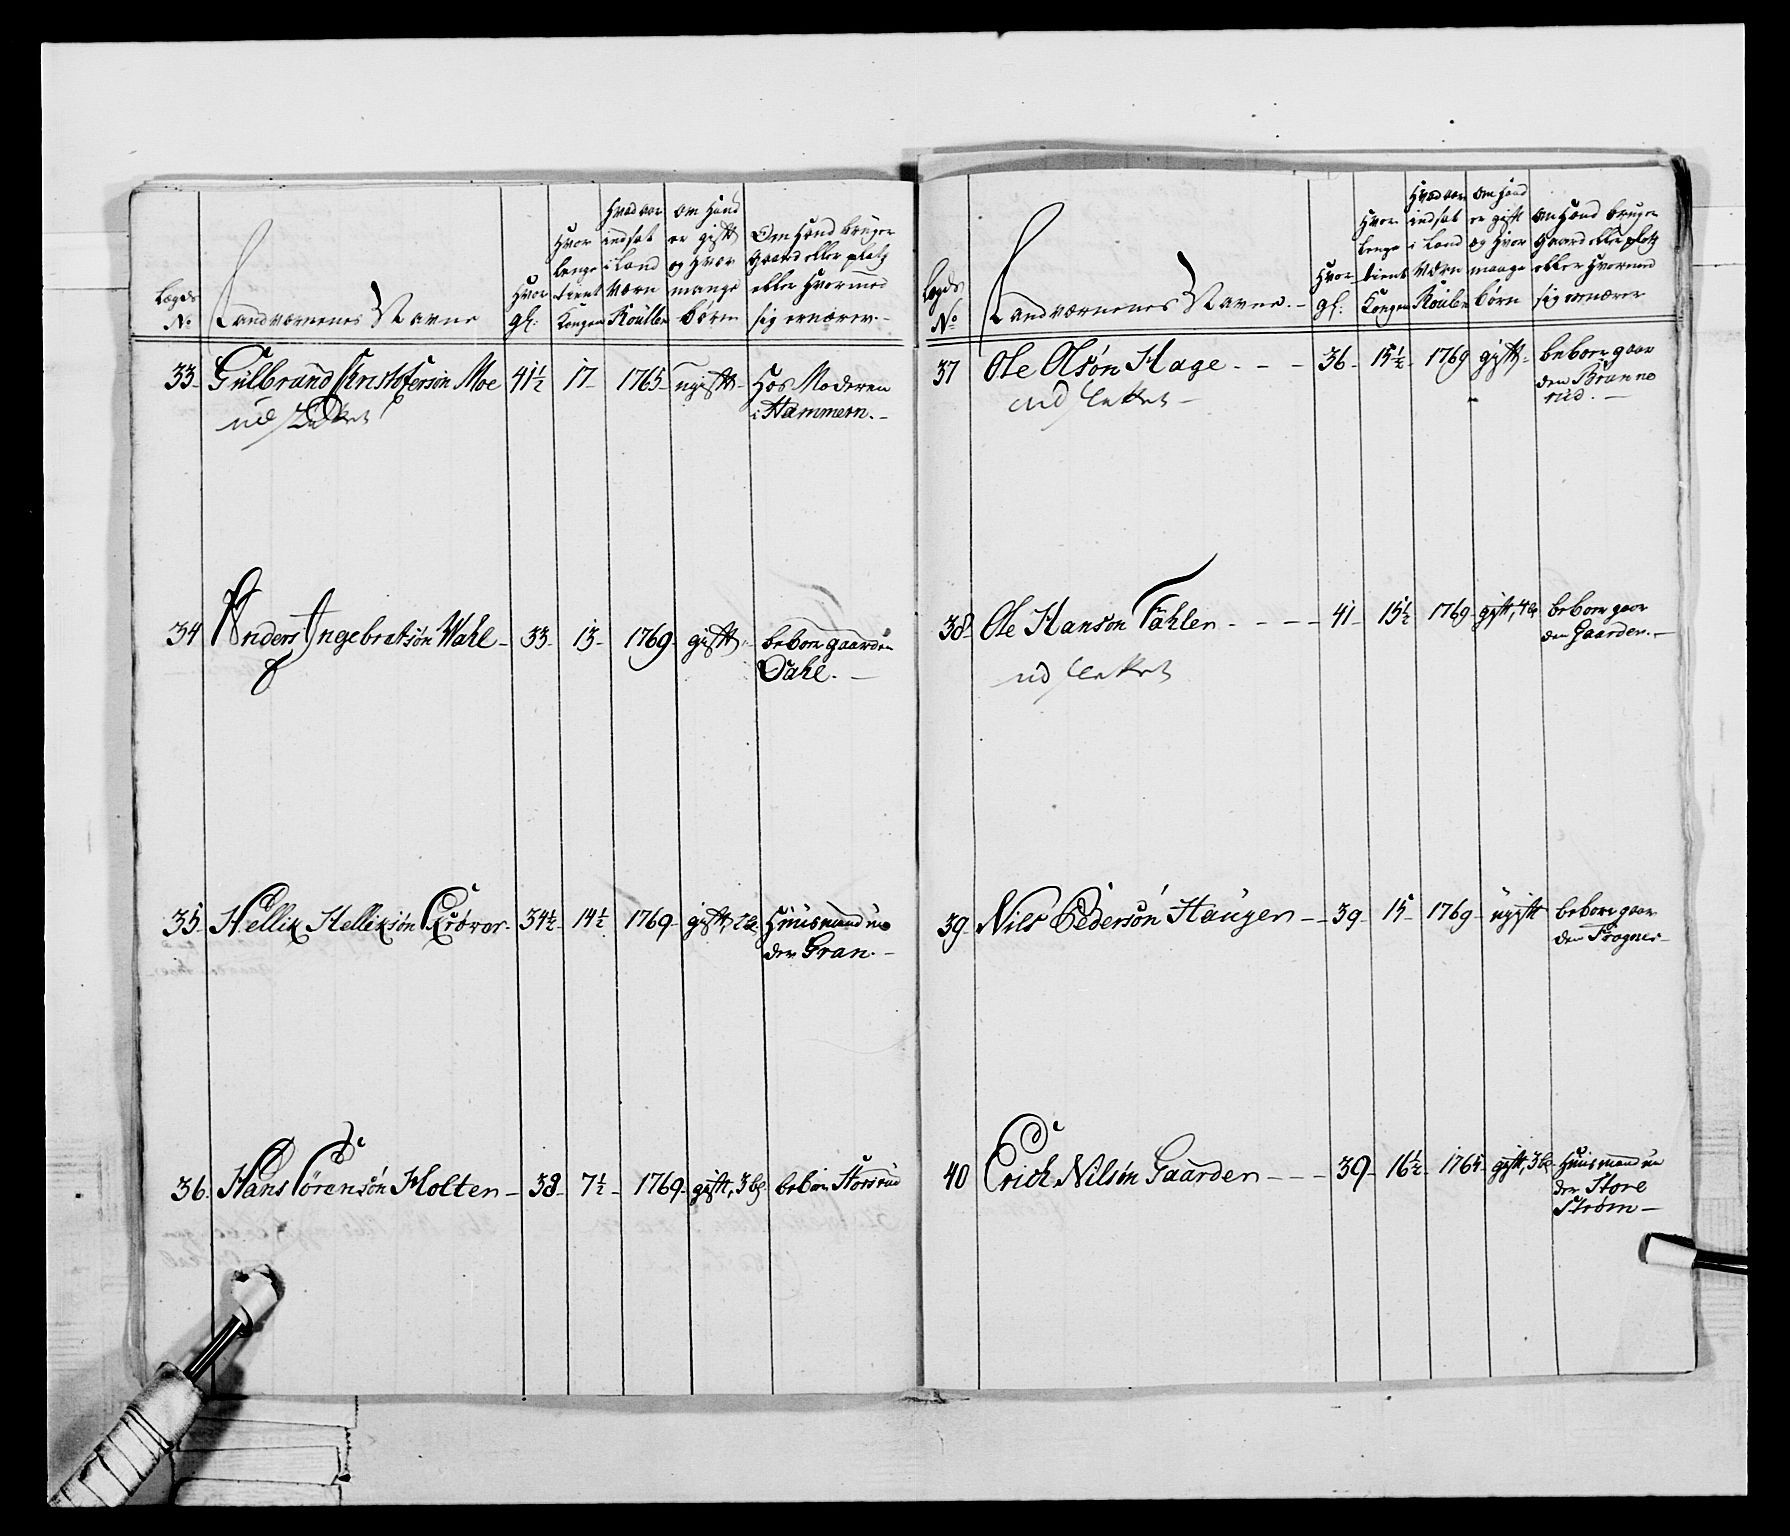 Lægds No
Landværnenes Navne
Hvor gl:
Hvor lenge tient Kongen
Hvad aar indsat i Land Værn Roullen
Om Hand er gift og Hvor mange børn
Om Hand bruger Gaard eller platz eller Hvormed sig ernærer.-
33 Gulbrand Christofersøn Moe 41½ 17 1765 ugift Hos Moderen
i Hammern.-
ud slettet
34 Anders Ingebretsøn Wahl 33 13 1769 gift beboer gaarden
Dahl.-
35 Hellik Helliksøn 34½ 14½ 1769 gift, 2 b. Huusmand un
der Gran.-
36 Hans Sørensøn Holten 38 7½ 1769 gift, 3 b. beboer Storsrud
Lægds No
Landværnenes Navne.-
Hvor gl:
Hvor lenge tient Kongen
Hvad aar indsat i Land Værn Roullen
Om Hand er gift og Hvor mange børn
Om Hand bruger Gaard eller platz eller Hvormed sig ernærer
37 Ole Olsøn Hage 36 15½ 1769 gift beboer gaar
den Brunne
rud.-
ud slettet
38 Ole Hansøn Fahlen 41 15½ 1769 gift, 4 b. beboer gaar
den Gaarden.-
ud slettet
39 Nils Pedersøn Haugen 39 15 1769 ugift beboer gaar
den Frogner
40 Erich Nilsøn Gaarden 39 16½ 1765 gift, 3 b. Huusmand un
der Store
Strøm